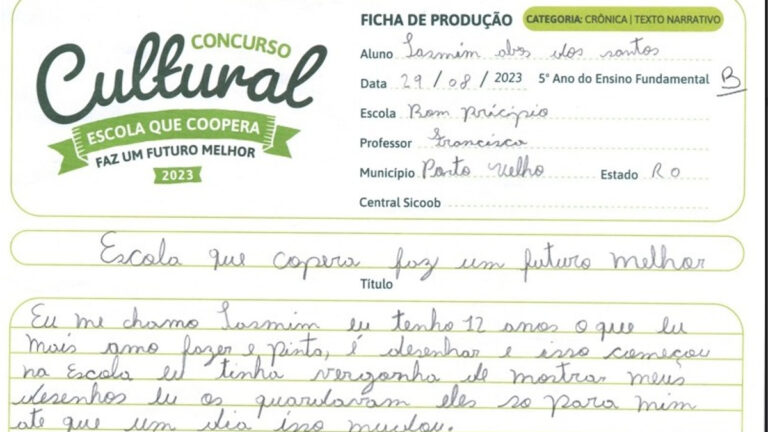 CONCURSO
Cultural
ESCOLA QUE COOPERA
FAZ UM FUTURO MELHOR
2023
FICHA DE PRODUÇÃO CATEGORIA: CRÔNICA | TEXTO NARRATIVO
Aluno Iasmim alves dos santos
Data 29 / 08 / 2023 5º Ano do Ensino Fundamental B
Escola Bom pricípio
Professor Francisca
Município Porto Velho Estado RO
Central Sicoob
Escola que copera faz um futuro melhor
Título
Eu me chamo Iasmim eu tenho 12 anos o que eu
mais amo fazer e pinta, é desenhar e isso começou
na Escola eu tinha vergonha de mostrar meus
desenhos eu os guardavam eles so para mim
ate que um dia isso mudou.